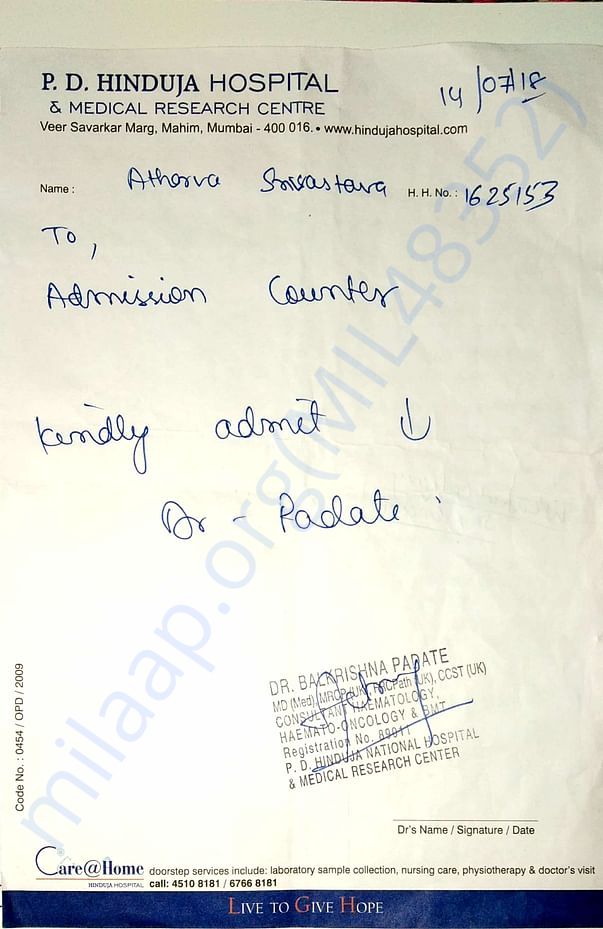 P. D. HINDUJA HOSPITAL
& MEDICAL RESEARCH CENTRE
Veer Savarkar Marg, Mahim, Mumbai - 400 016. • www.hindujahospital.com
14/07/18
Name : Atharva Srivastava H. H. No. : 1625153
To,
Admission Counter
Kindly admit ↓
Dr - Padate
DR. BALKRISHNA PADATE
MD (Med), MRCP (UK), FRCPath (UK), CCST (UK)
CONSULTANT HAEMATOLOGY,
HAEMATO-ONCOLOGY & BMT
Registration No. 89911
P. D. HINDUJA NATIONAL HOSPITAL
& MEDICAL RESEARCH CENTER
Code No. : 0454 / OPD / 2009
Dr's Name / Signature / Date
Care@Home doorstep services include: laboratory sample collection, nursing care, physiotherapy & doctor's visit
HINDUJA HOSPITAL call: 4510 8181 / 6766 8181
LIVE TO GIVE HOPE
milaap.org(MIL48352)